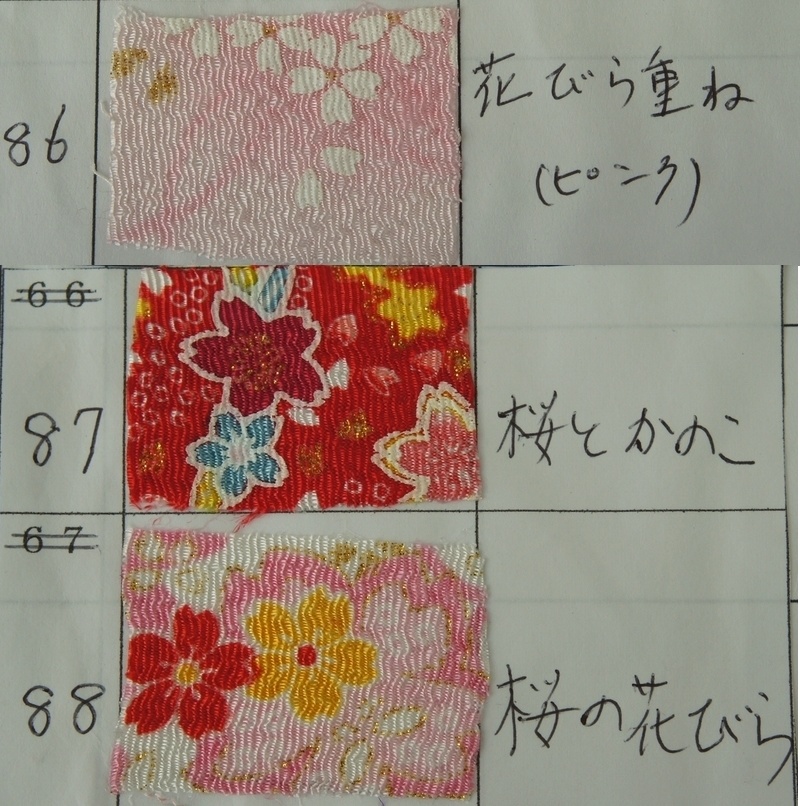 86
花びら重ね
(ピンク)
66
87
桜とかのこ
67
88
桜の花びら